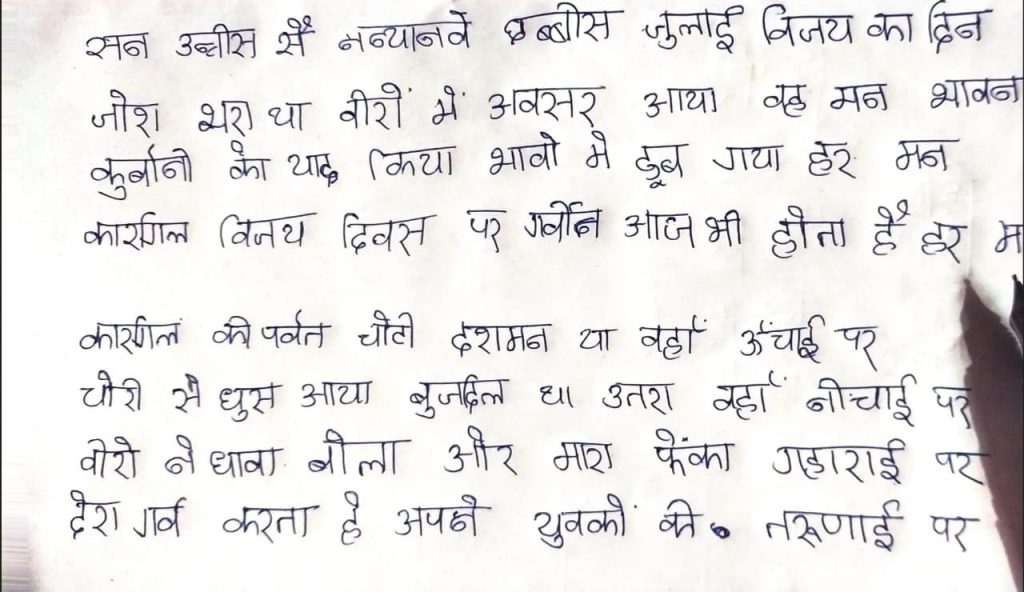 सन उन्नीस सै नन्यानवे छब्बीस जुलाई विजय का दिन
जोश भरा था वीरों में अवसर आया वह मन भावन
कुर्बानी को याद किया भावो मे डूब गया हर मन
कारगिल विजय दिवस पर गर्वोन आज भी होता है हर म
कारगिल की पर्वत चोटी दुशमन था वहाँ ऊँचाई पर
चोरी से घुस आया बुजदिल था उतरा वहाँ नीचाई पर
वीरो ने धावा बोला और मारा फेंका गहाराई पर
देश गर्व करता है अपने युवकों की तरूणाई पर